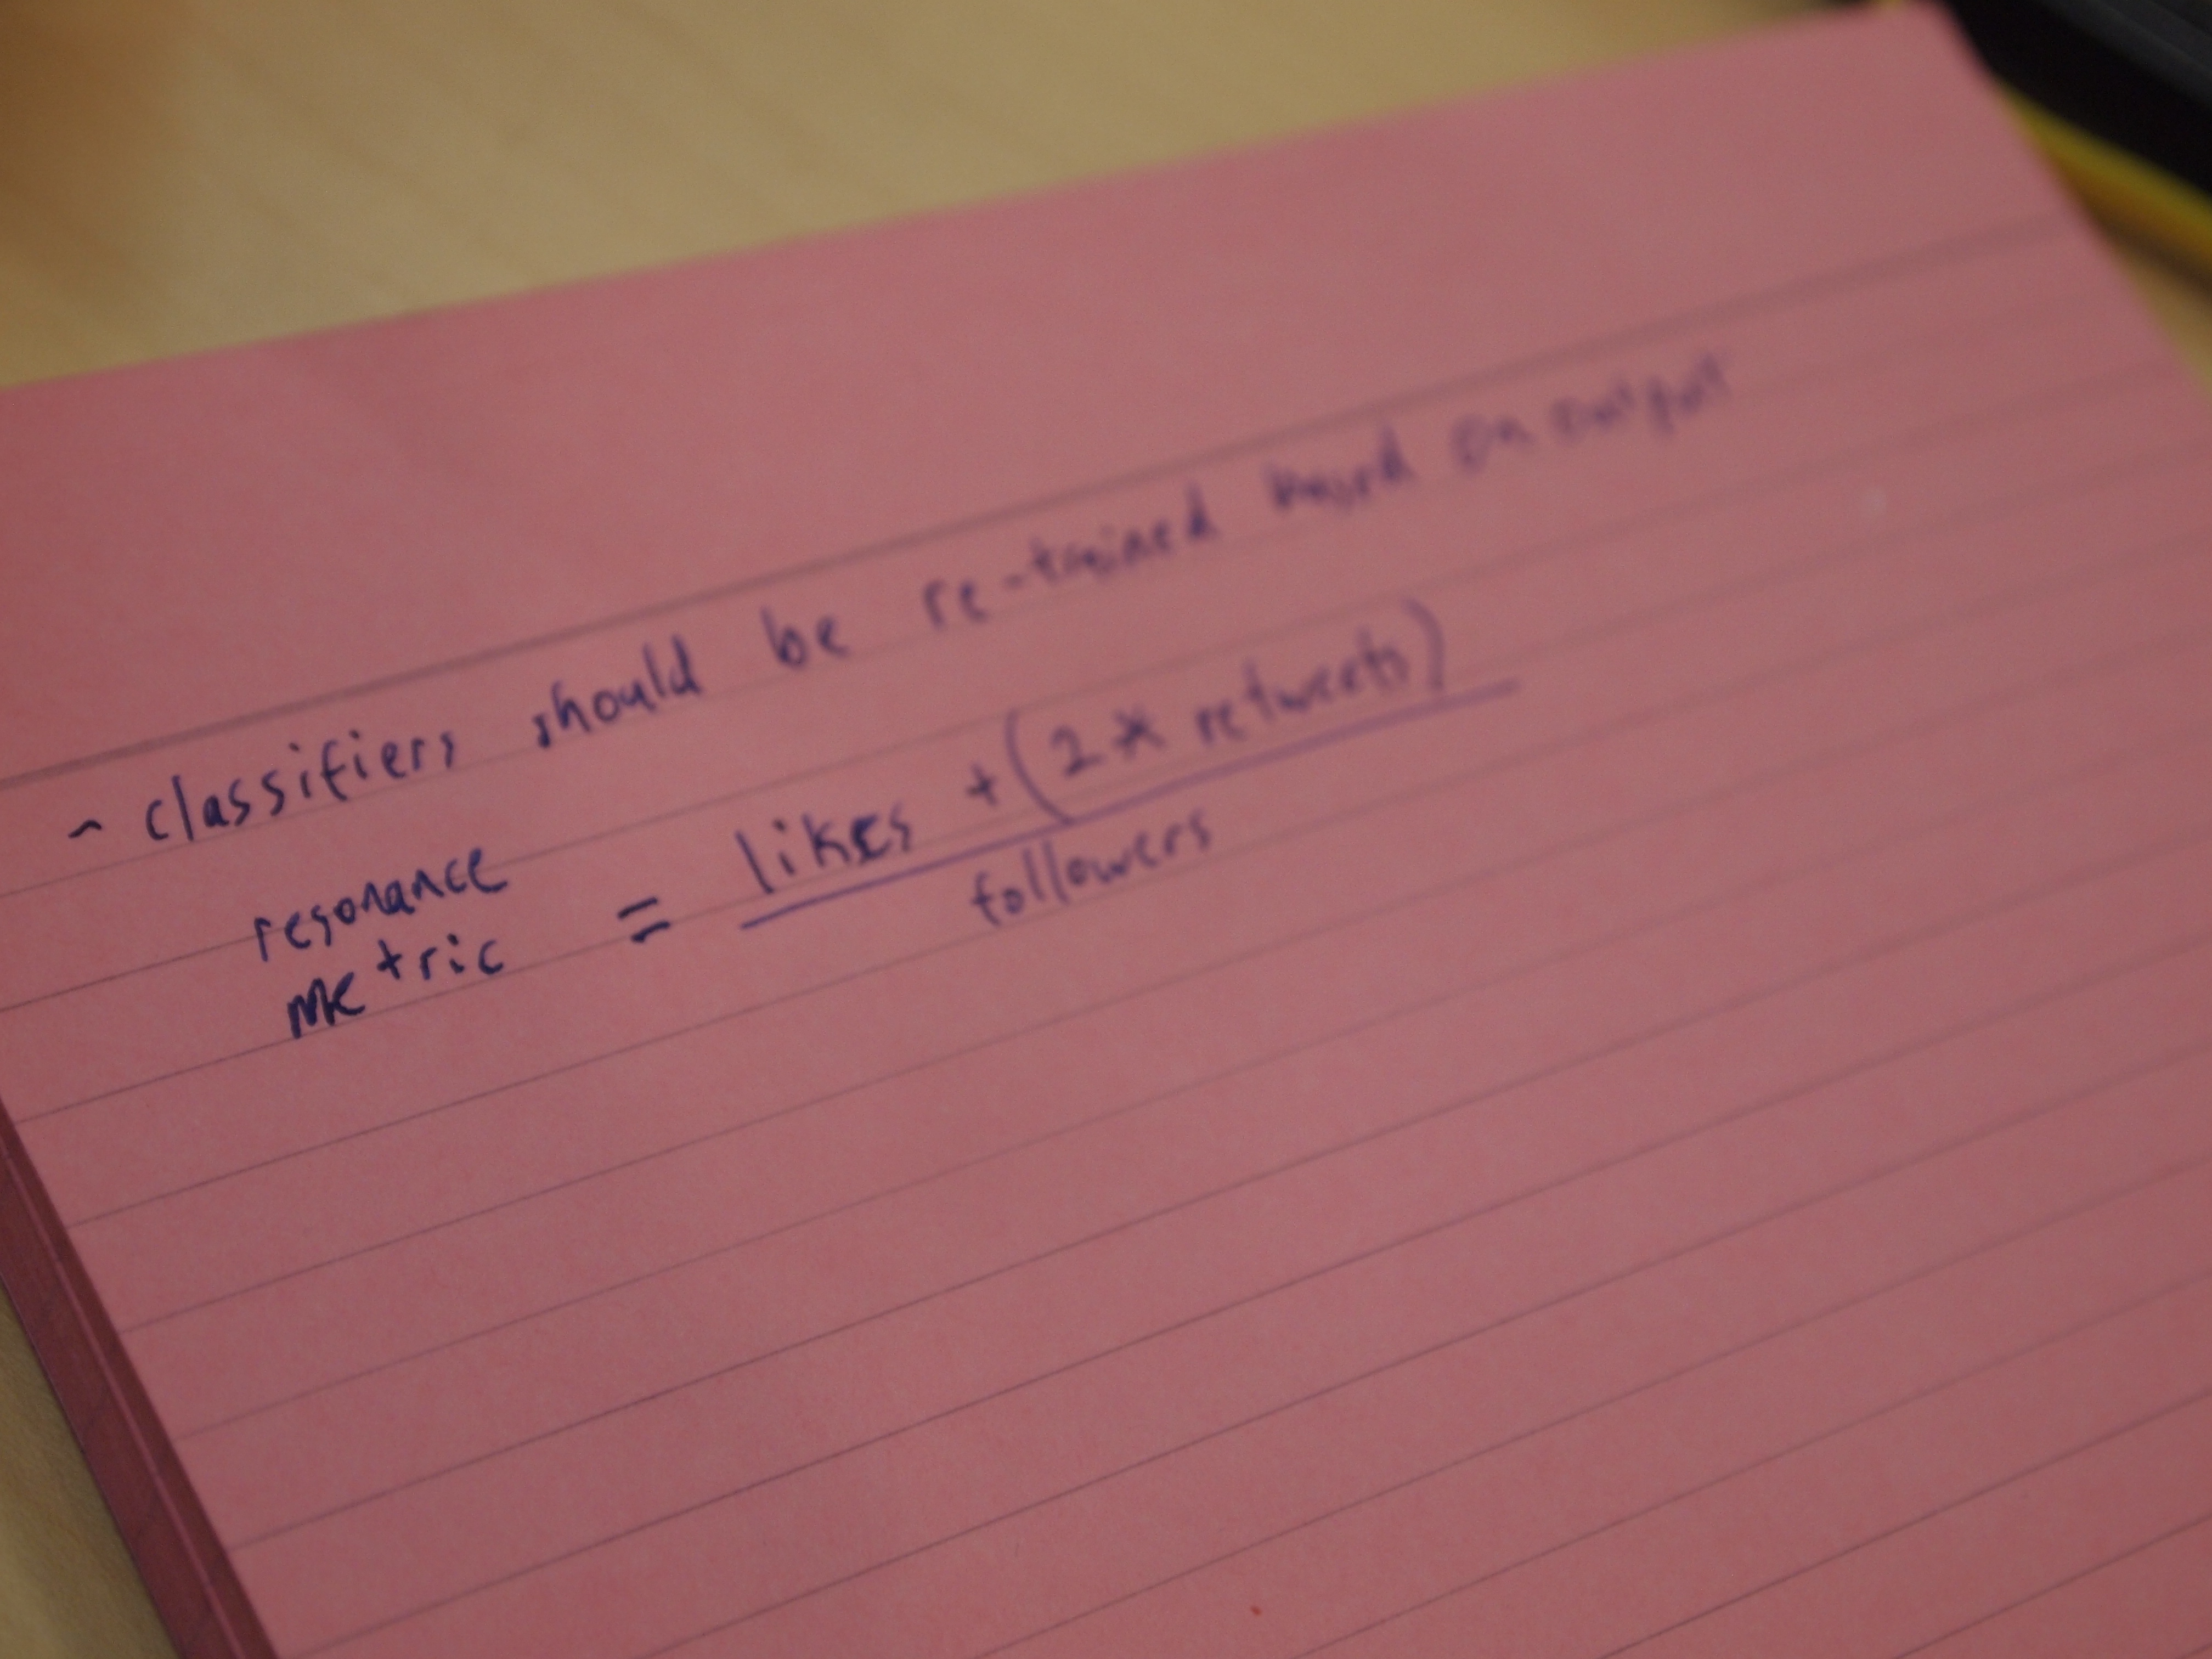 - classifiers should be re-trained based on output
resonance
metric = likes + (2 * retweets)
followers